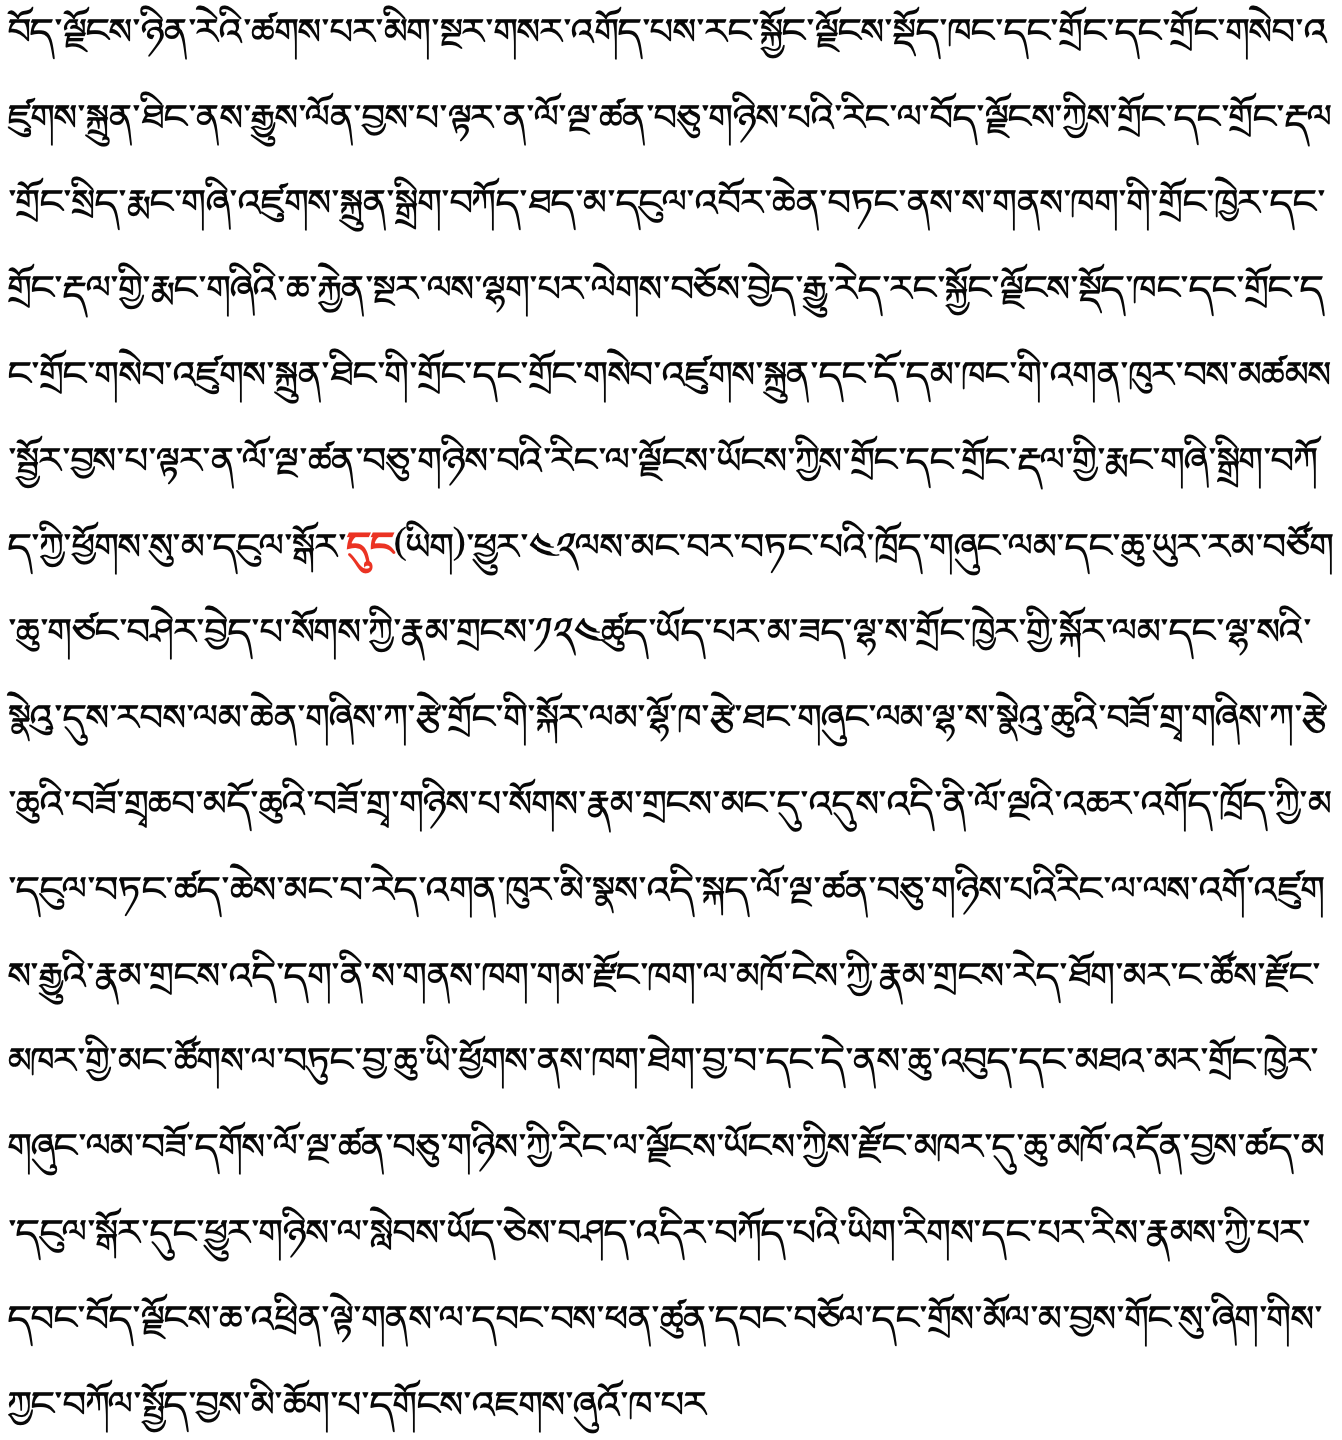 བོད་ལྗོངས་ཉིན་རེའི་ཚགས་པར་མིག་སྔར་གསར་འགོད་པས་རང་སྐྱོང་ལྗོངས་སྡོད་ཁང་དང་གྲོང་དང་གྲོང་གསེབ་འ
ཛུགས་སྐྲུན་ཐིང་ནས་རྒྱུས་ལོན་བྱས་པ་ལྟར་ན་ལོ་ལྔ་ཚན་བཅུ་གཉིས་པའི་རིང་ལ་བོད་ལྗོངས་ཀྱིས་གྲོང་དང་གྲོང་རྡལ
་གྲོང་སྲིད་རྨང་གཞི་འཛུགས་སྐྲུན་སྒྲིག་བཀོད་ཐད་མ་དངུལ་འབོར་ཆེན་བཏང་ནས་ས་གནས་ཁག་གི་གྲོང་ཁྱེར་དང་
གྲོང་རྡལ་གྱི་རྨང་གཞིའི་ཆ་རྐྱེན་སྔར་ལས་ལྷག་པར་ལེགས་བཅོས་བྱེད་རྒྱུ་རེད་རང་སྐྱོང་ལྗོངས་སྡོད་ཁང་དང་གྲོང་ད
ང་གྲོང་གསེབ་འཛུགས་སྐྲུན་ཐིང་གི་གྲོང་དང་གྲོང་གསེབ་འཛུགས་སྐྲུན་དང་དོ་དམ་ཁང་གི་འགན་ཁུར་བས་མཚམས
་སྦྱོར་བྱས་པ་ལྟར་ན་ལོ་ལྔ་ཚན་བཅུ་གཉིས་བའི་རིང་ལ་ལྗོངས་ཡོངས་ཀྱིས་གྲོང་དང་གྲོང་རྡལ་གྱི་རྨང་གཞི་སྒྲིག་བཀོ
ད་ཀྱི་ཕྱོགས་སུ་མ་དངུལ་སྒོར་དུང(ཡིག)་ཕྱུར་༤༢ལས་མང་བར་བཏང་པའི་ཁྲོད་གཞུང་ལམ་དང་ཆུ་ཡུར་རམ་བཙོག
་ཆུ་གཙང་བཤེར་བྱེད་པ་སོགས་ཀྱི་རྣམ་གྲངས་༡༢༤ཚུད་ཡོད་པར་མ་ཟད་ལྷ་ས་གྲོང་ཁྱེར་གྱི་སྐོར་ལམ་དང་ལྷ་སའི་
སྣེའུ་དུས་རབས་ལམ་ཆེན་གཞིས་ཀ་རྩེ་གྲོང་གི་སྐོར་ལམ་ལྷོ་ཁ་རྩེ་ཐང་གཞུང་ལམ་ལྷ་ས་སྣེའུ་ཆུའི་བཟོ་གྲྭ་གཞིས་ཀ་རྩེ
་ཆུའི་བཟོ་གྲྭཆབ་མདོ་ཆུའི་བཟོ་གྲྭ་གཉིས་པ་སོགས་རྣམ་གྲངས་མང་དུ་འདུས་འདི་ནི་ལོ་ལྔའི་འཆར་འགོད་ཁྲོད་ཀྱི་མ
་དངུལ་བཏང་ཚད་ཆེས་མང་བ་རེད་འགན་ཁུར་མི་སྣས་འདི་སྐད་ལོ་ལྔ་ཚན་བཅུ་གཉིས་པའིརིང་ལ་ལས་འགོ་འཛུག
ས་རྒྱུའི་རྣམ་གྲངས་འདི་དག་ནི་ས་གནས་ཁག་གམ་རྫོང་ཁག་ལ་མཁོ་ངེས་ཀྱི་རྣམ་གྲངས་རེད་ཐོག་མར་ང་ཚོས་རྫོང་
མཁར་གྱི་མང་ཚོགས་ལ་བཏུང་བྱ་ཆུ་ཡི་ཕྱོགས་ནས་ཁག་ཐེག་བྱ་བ་དང་དེ་ནས་ཆུ་འབུད་དང་མཐའ་མར་གྲོང་ཁྱེར་
གཞུང་ལམ་བཟོ་དགོས་ལོ་ལྔ་ཚན་བཅུ་གཉིས་ཀྱི་རིང་ལ་ལྗོངས་ཡོངས་ཀྱིས་རྫོང་མཁར་དུ་ཆུ་མཁོ་འདོན་བྱས་ཚད་མ
་དངུལ་སྒོར་དུང་ཕྱུར་གཉིས་ལ་སླེབས་ཡོད་ཅེས་བཤད་འདིར་བཀོད་པའི་ཡིག་རིགས་དང་པར་རིས་རྣམས་ཀྱི་པར་
དབང་བོད་ལྗོངས་ཆ་འཕྲིན་ལྟེ་གནས་ལ་དབང་བས་ཕན་ཚུན་དབང་བཅོལ་དང་གྲོས་མོལ་མ་བྱས་གོང་སུ་ཞིག་གིས་
ཀྱང་བཀོལ་སྤྱོད་བྱས་མི་ཆོག་པ་དགོངས་འཇགས་ཞུའོ་ཁ་པར